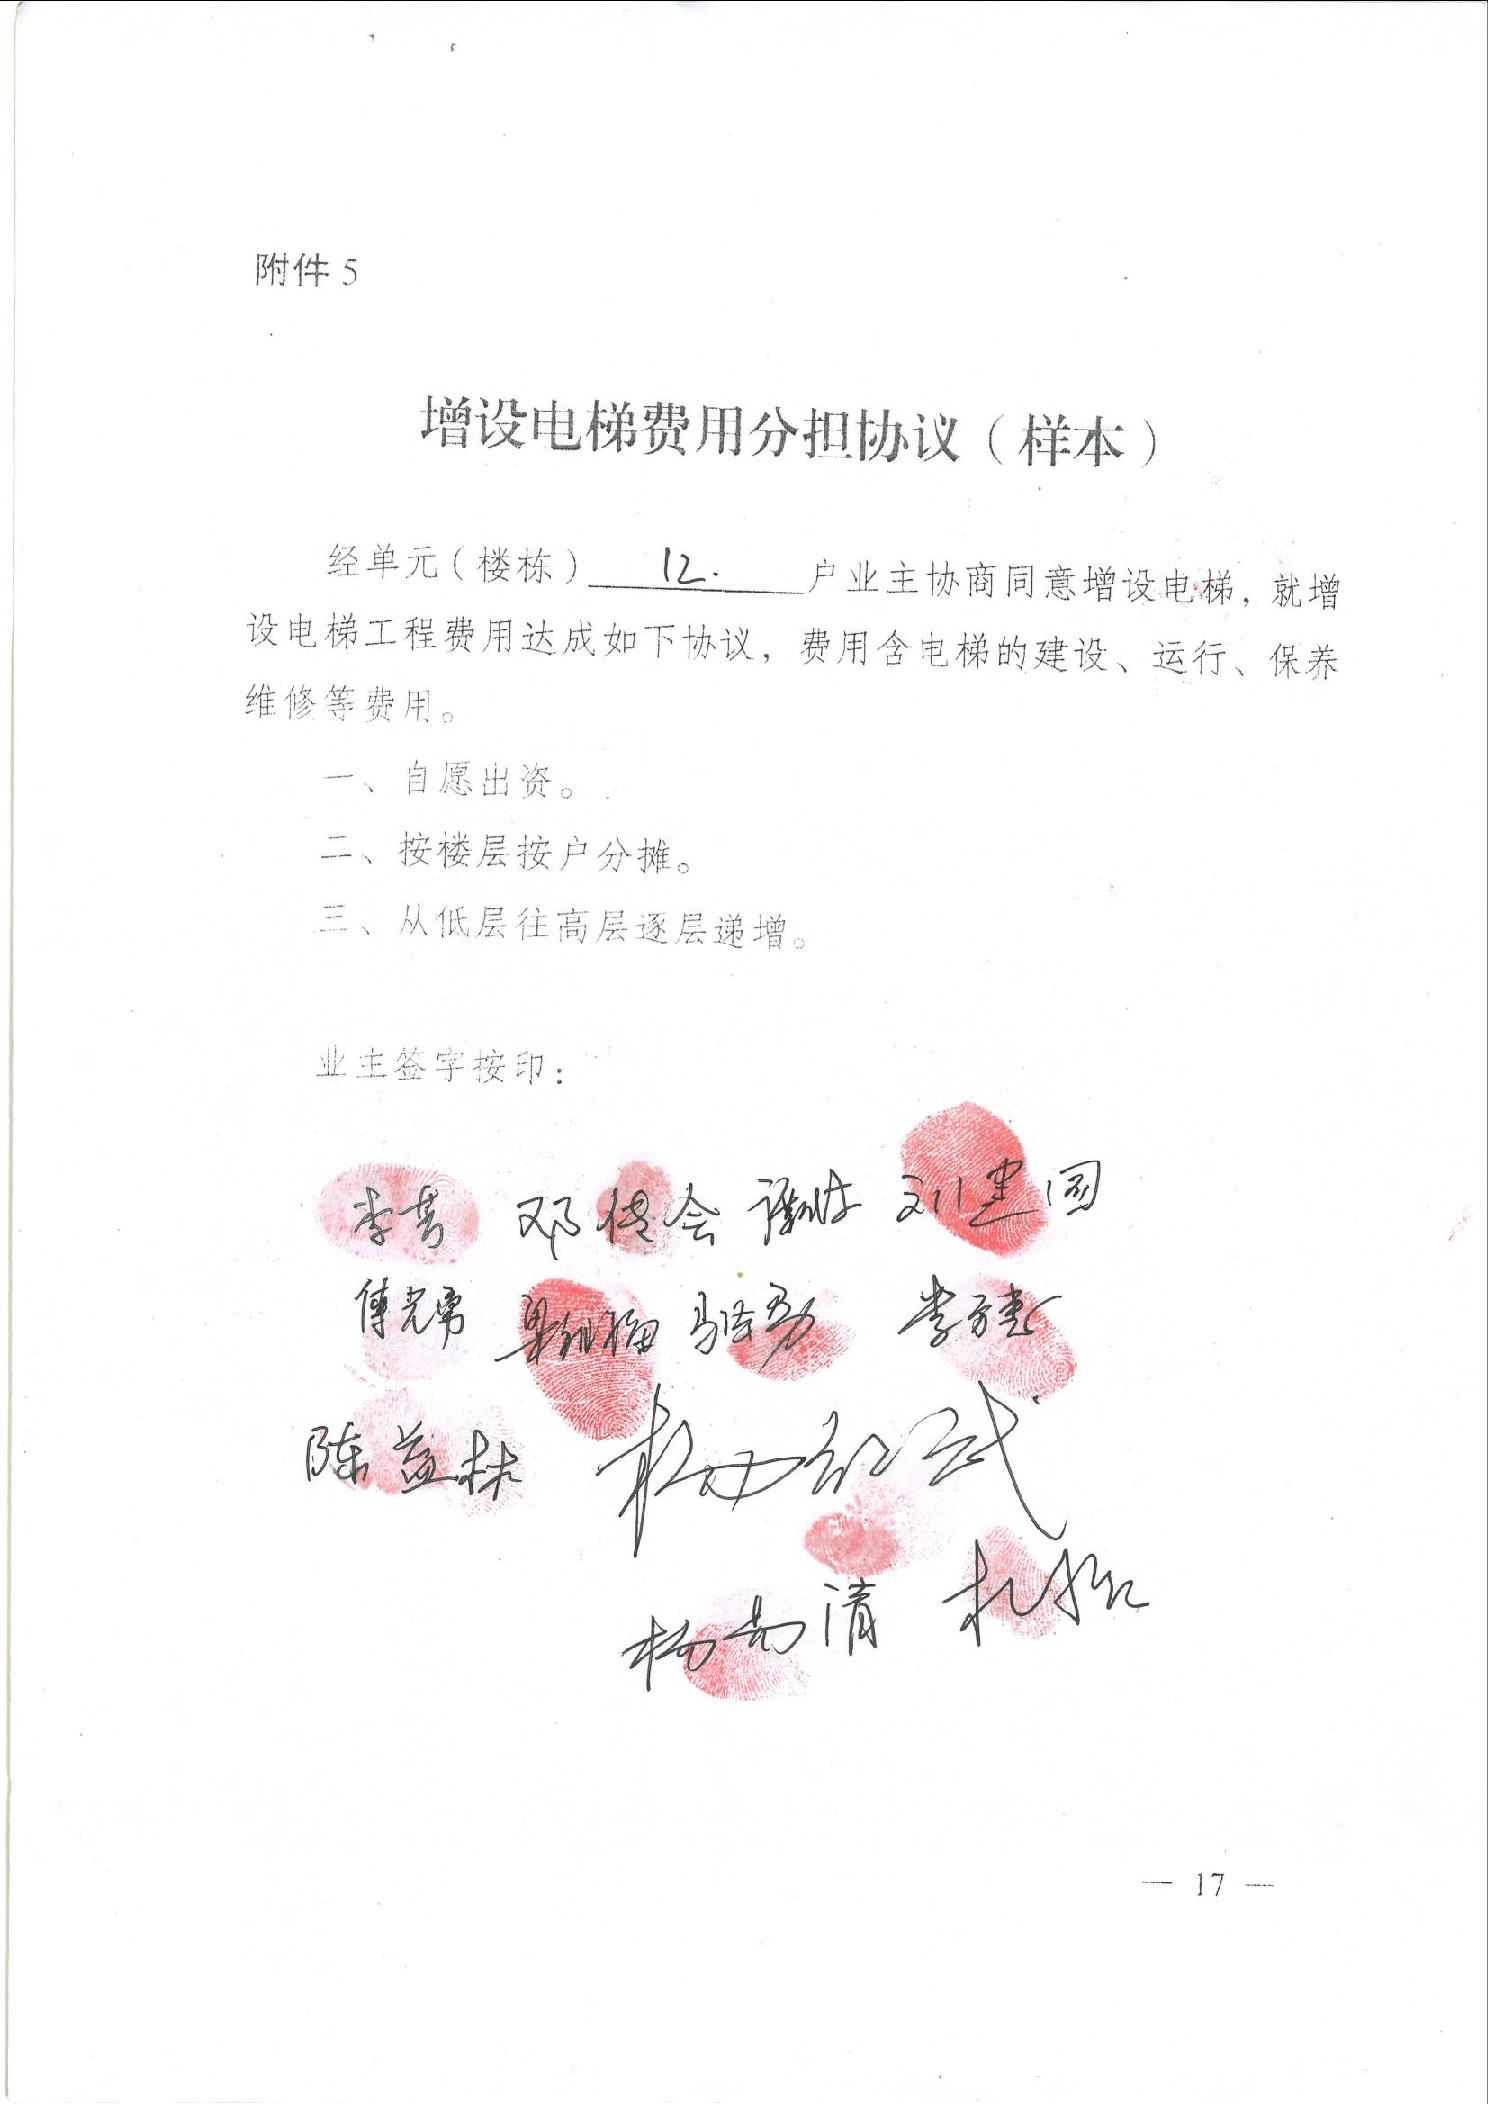 附件5
增设电梯费用分担协议（样本）
经单元（楼栋）12.户业主协商同意增设电梯，就增
设电梯工程费用达成如下协议，费用含电梯的建设、运行、保养
维修等费用。
一、自愿出资。
二、按楼层按户分摊。
三、从低层往高层逐层递增。
业主签字按印：
邓 会 刘建国
傅光勇
陈益林
杨 清
— 17 —